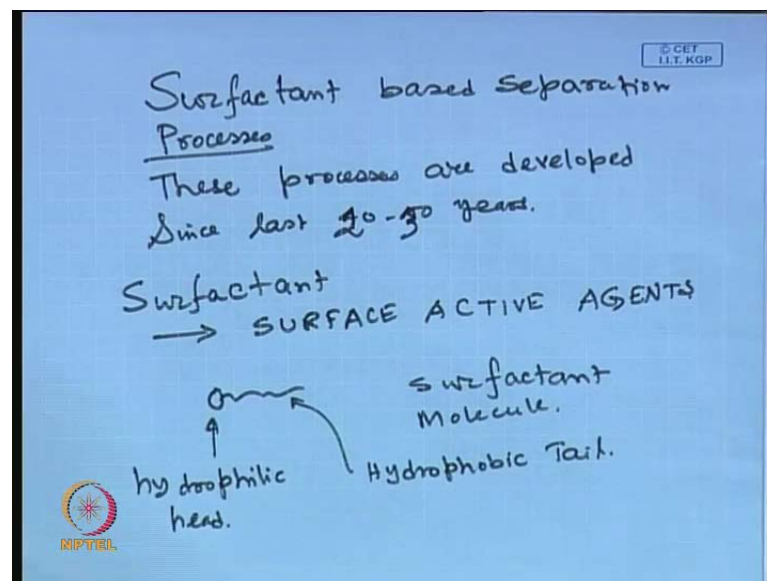 © CET
I.I.T. KGP
Surfactant based separation
Processes
These processes are developed
Since last 20-30 years.
Surfactant
→ SURFACE ACTIVE AGENTS
surfactant
Molecule.
hydrophilic
head.
Hydrophobic Tail.
NPTEL